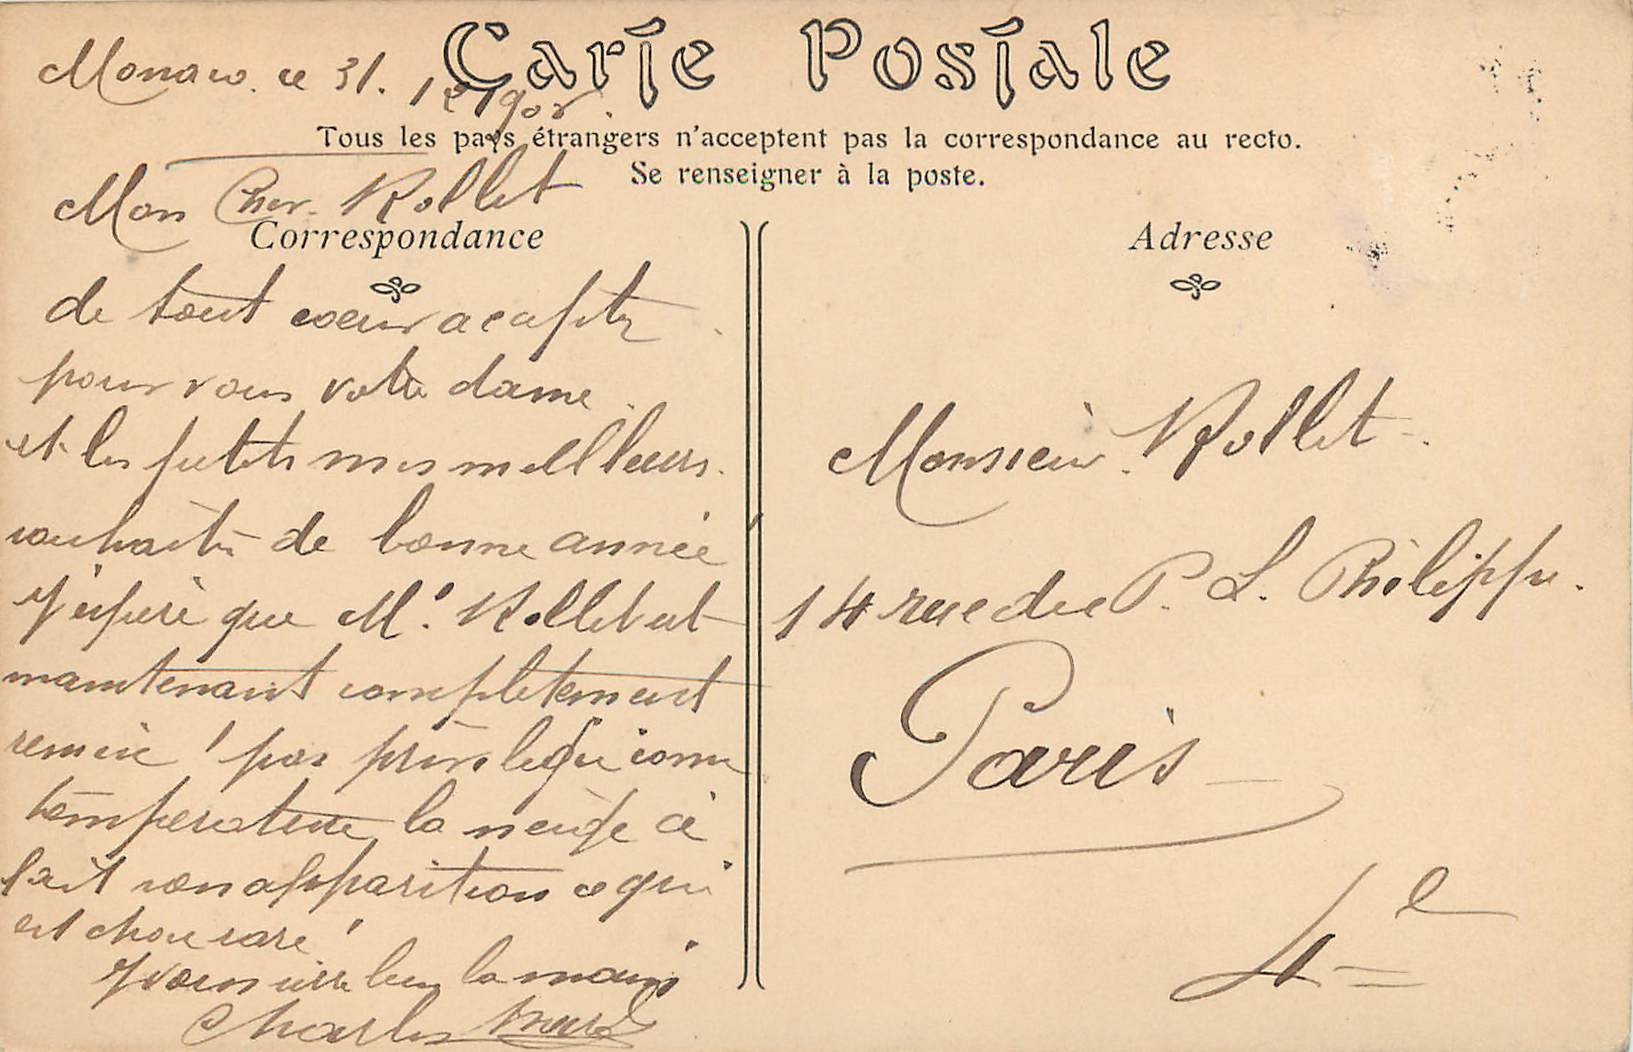 Carte Postale
Tous les pays étrangers n'acceptent pas la correspondance au recto.
Se renseigner à la poste.
Correspondance
Monaco. ce 31. 12 1908.
Mon Cher Rollet
de tout coeur acceptez
pour vous votre dame
et les petits mes meilleurs
souhaits de bonne année
J'espère que Mr. Rollet est
maintenant completement
remise ! pas
temperature la neige a
fait son apparition ce qui
est chose rare !
Je vous serre bien la main
Charles
Adresse
Monsieur. Rollet
14 rue du P. L. Philippe.
Paris
4e